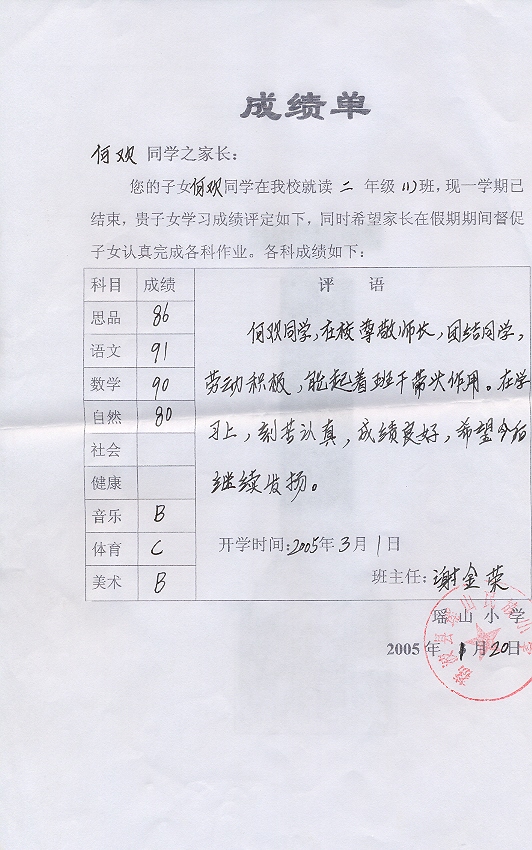 成绩单
何欢 同学之家长：
您的子女何欢同学在我校就读 二 年级 (1) 班，现一学期已
结束，贵子女学习成绩评定如下，同时希望家长在假期期间督促
子女认真完成各科作业。各科成绩如下：
科目 成绩 评 语
思品 86
语文 91
数学 90
自然 80
社会
健康
音乐 B
体育 C
美术 B
何欢同学，在校尊敬师长，团结同学，
劳动积极，能起着班干带头作用。在学
习上，刻苦认真，成绩良好，希望今后
继续发扬。
开学时间:2005年3月1日
班主任:谢金荣
瑶山小学
2005 年 1 月 20 日